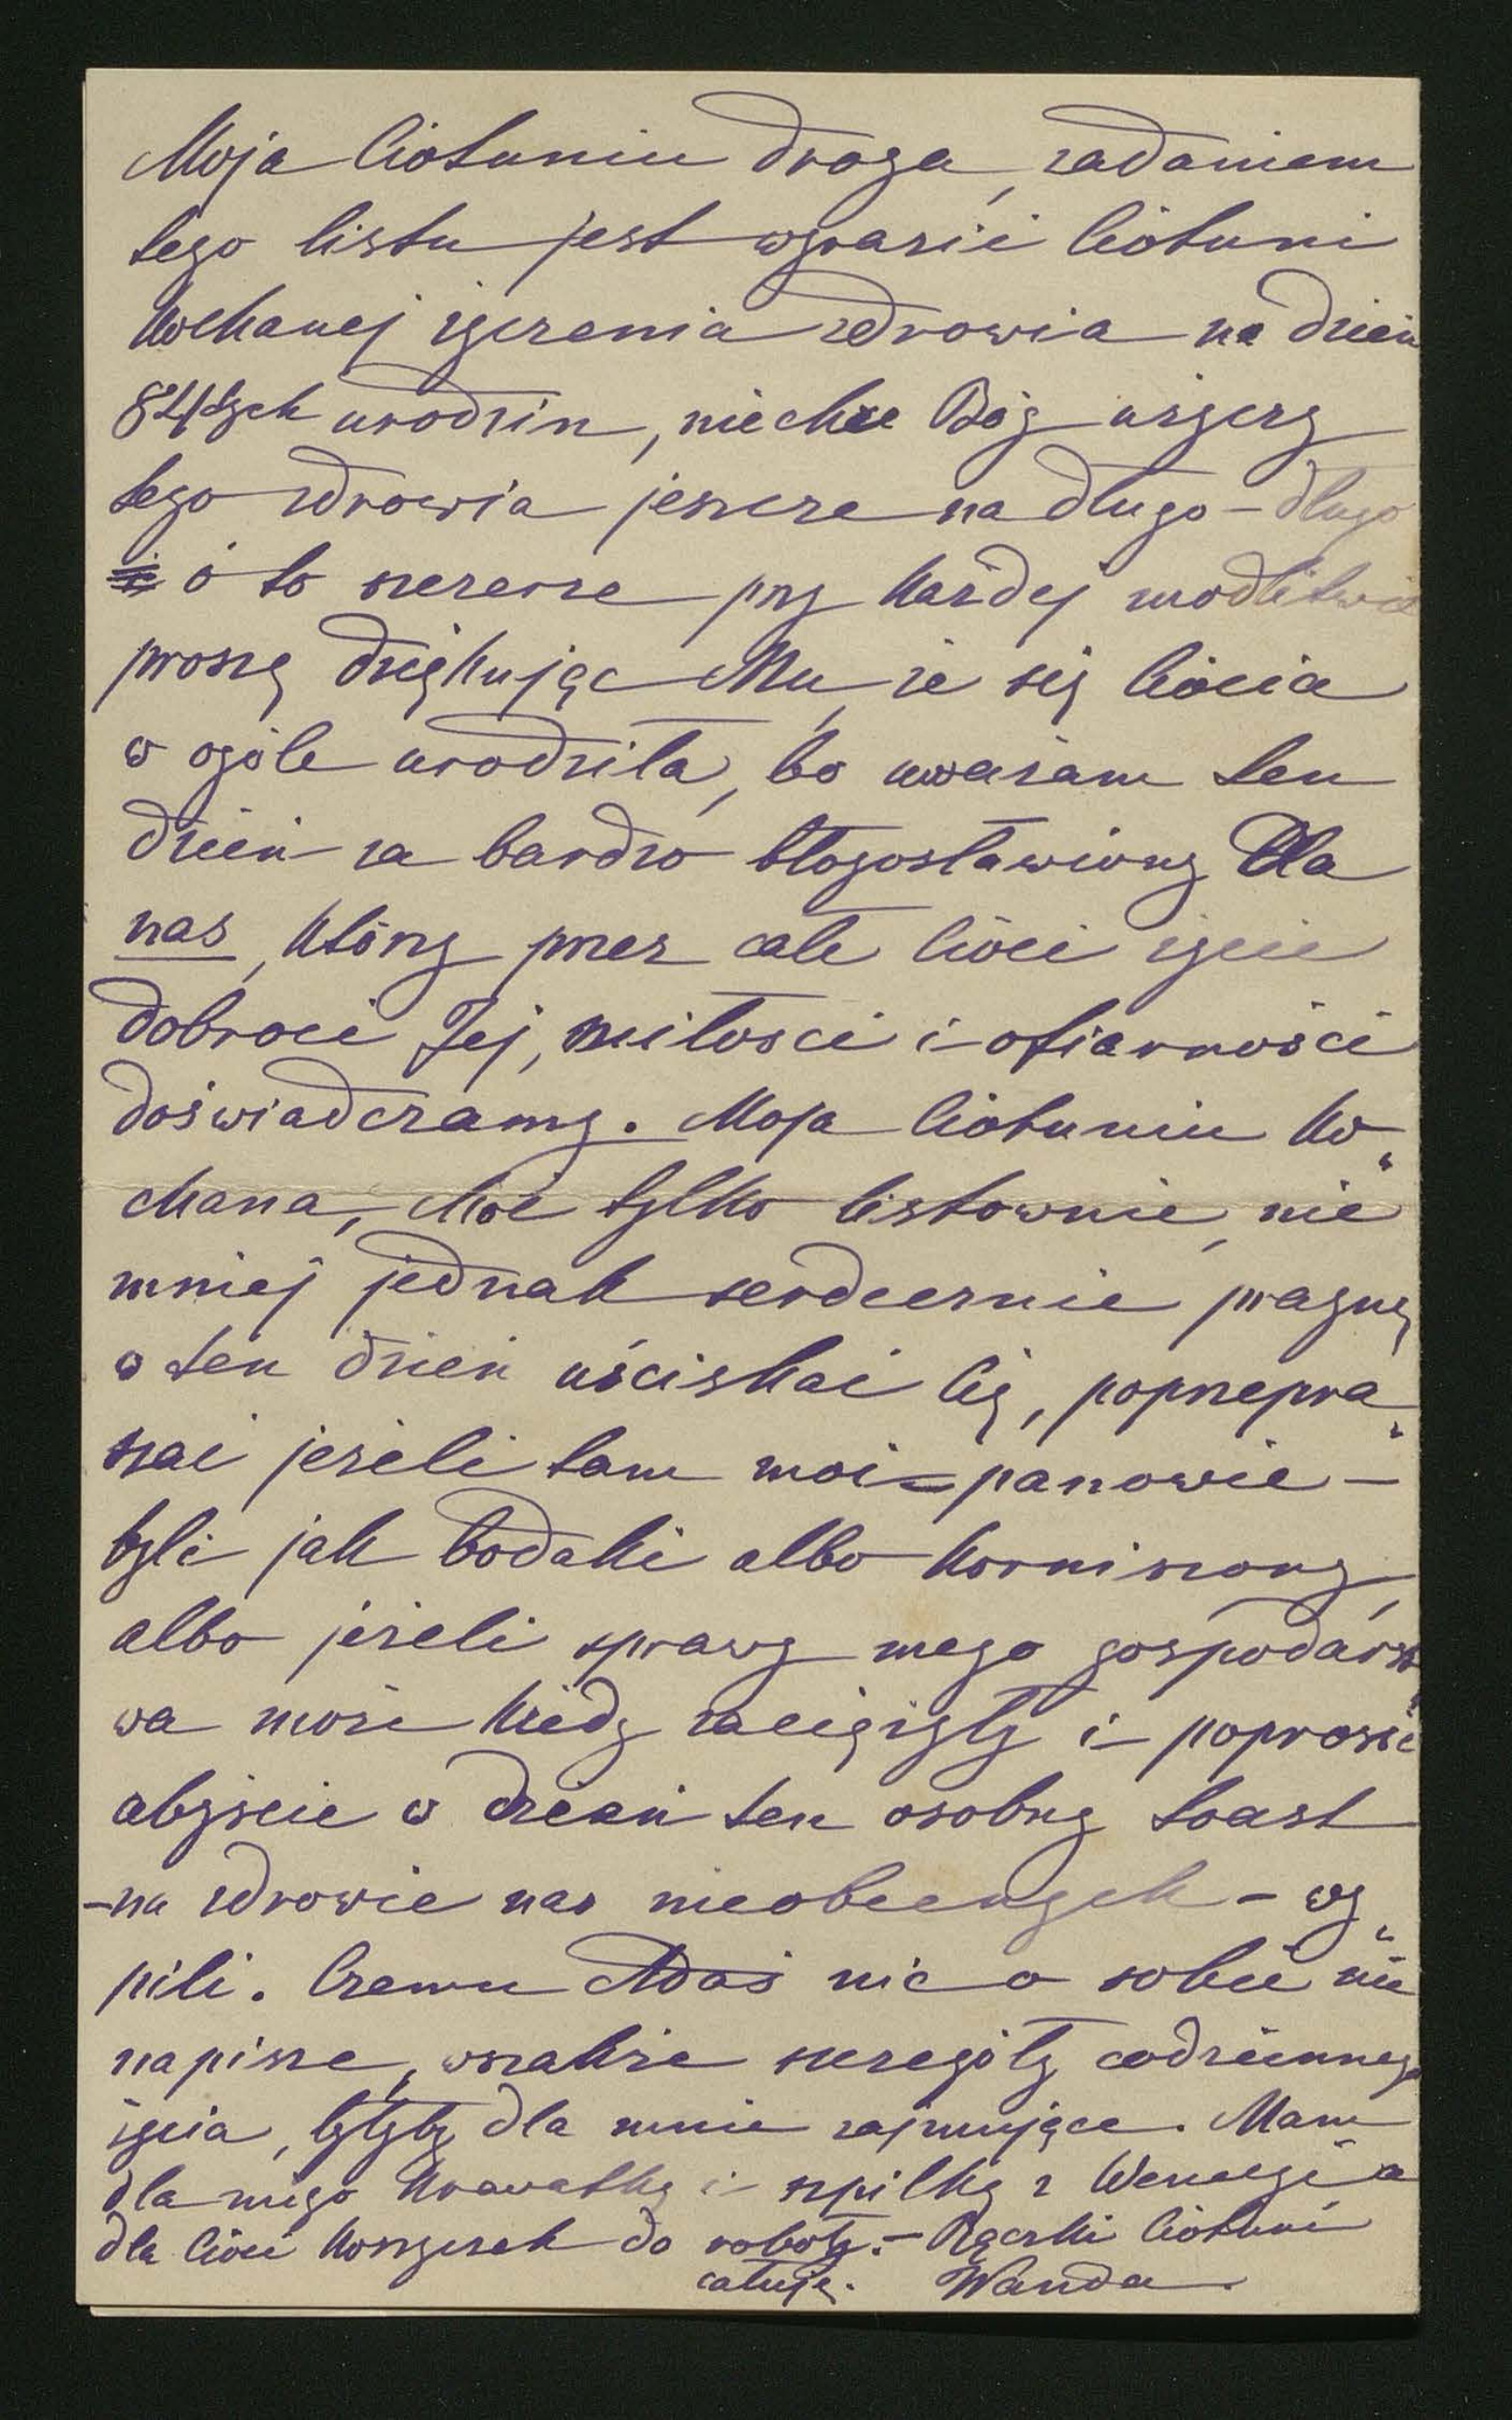 Moja Ciotuniu droga, zadaniem
tego listu jest wyrazić Ciotuni
kochanej życzenia zdrowia na dzień
84tych urodzin, niechże Bóg użyczy
tego zdrowia jeszcze na długo – długo
o to szczerze przy każdej modlitwie
proszę dziękując Mu, że się Ciocia
w ogóle urodziła, bo uważam ten
dzień za bardzo błogosławiony dla
nas, którzy przez całe Cioci życie
dobroci Jej, miłości i ofiarności
doświadczamy. Moja Ciotuniu ko„
chana, choć tylko listownie, nie
mniej jednak serdecznie pragnę
w ten dzień uściskać Cię, poprzepra„
szać jeżeli tam moi – panowie –
byli jak bodaki albo korniszony,
albo jeżeli sprawy mego gospodarst„
wa może kiedy zaciężyły i – poprosić
abyście w dzień ten osobny toast
– na zdrowie nas nieobecnych – wy„
pili. Czemu Adaś nic o sobie nie
napisze, wszakże szczegóły codziennego
życia, byłyby dla mnie zajmujące. Mam
dla niego krawatkę i szpilkę z Wenecji a
dla Cioci koszyczek do roboty. – Rączki Ciotuni
całuję. Wanda